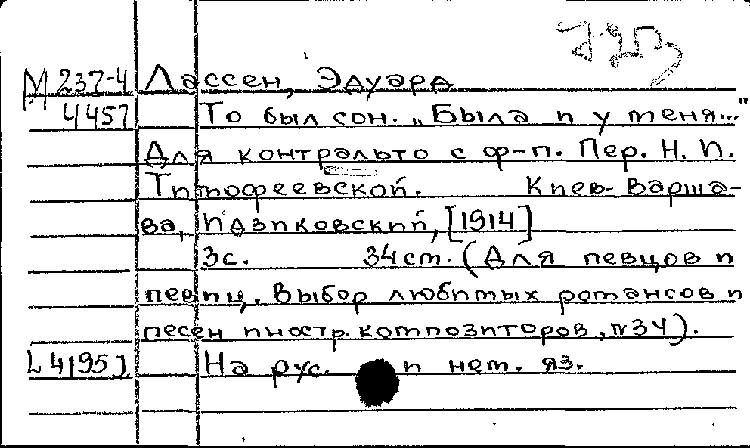 М 237-4 Лассен, Эдуард
4457 То был сон. „Была и у меня..."
Для контральто с ф-п. Пер. Н. И.
Тимофеевской. Киев-Варша-
ва, Идзиковский, [1914]
3с. 34 см. (Для певцов и
певиц. Выбор любимых романсов и
песен иностр. композиторов, №34).
[4195] На рус. и нем. яз.